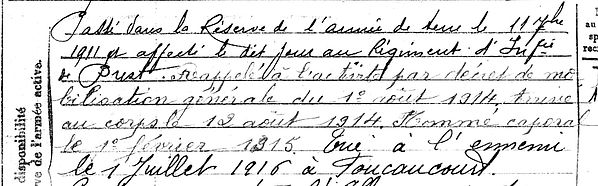 Passé dans la Réserve de l'armée de terre le 11 7bre
1911 et affecté le dit jour au Régiment d'Infie
de Brest. Rappelé à l'activité par décret de mo
bilisation générale du 1er août 1914. Arrivé
au corps le 12 août 1914. Nommé caporal
le 1er février 1915. Tué à l'ennemi
le 1 Juillet 1916 à Foucaucourt.
disponibilité
ve de l'armée active.
au
sp
rec